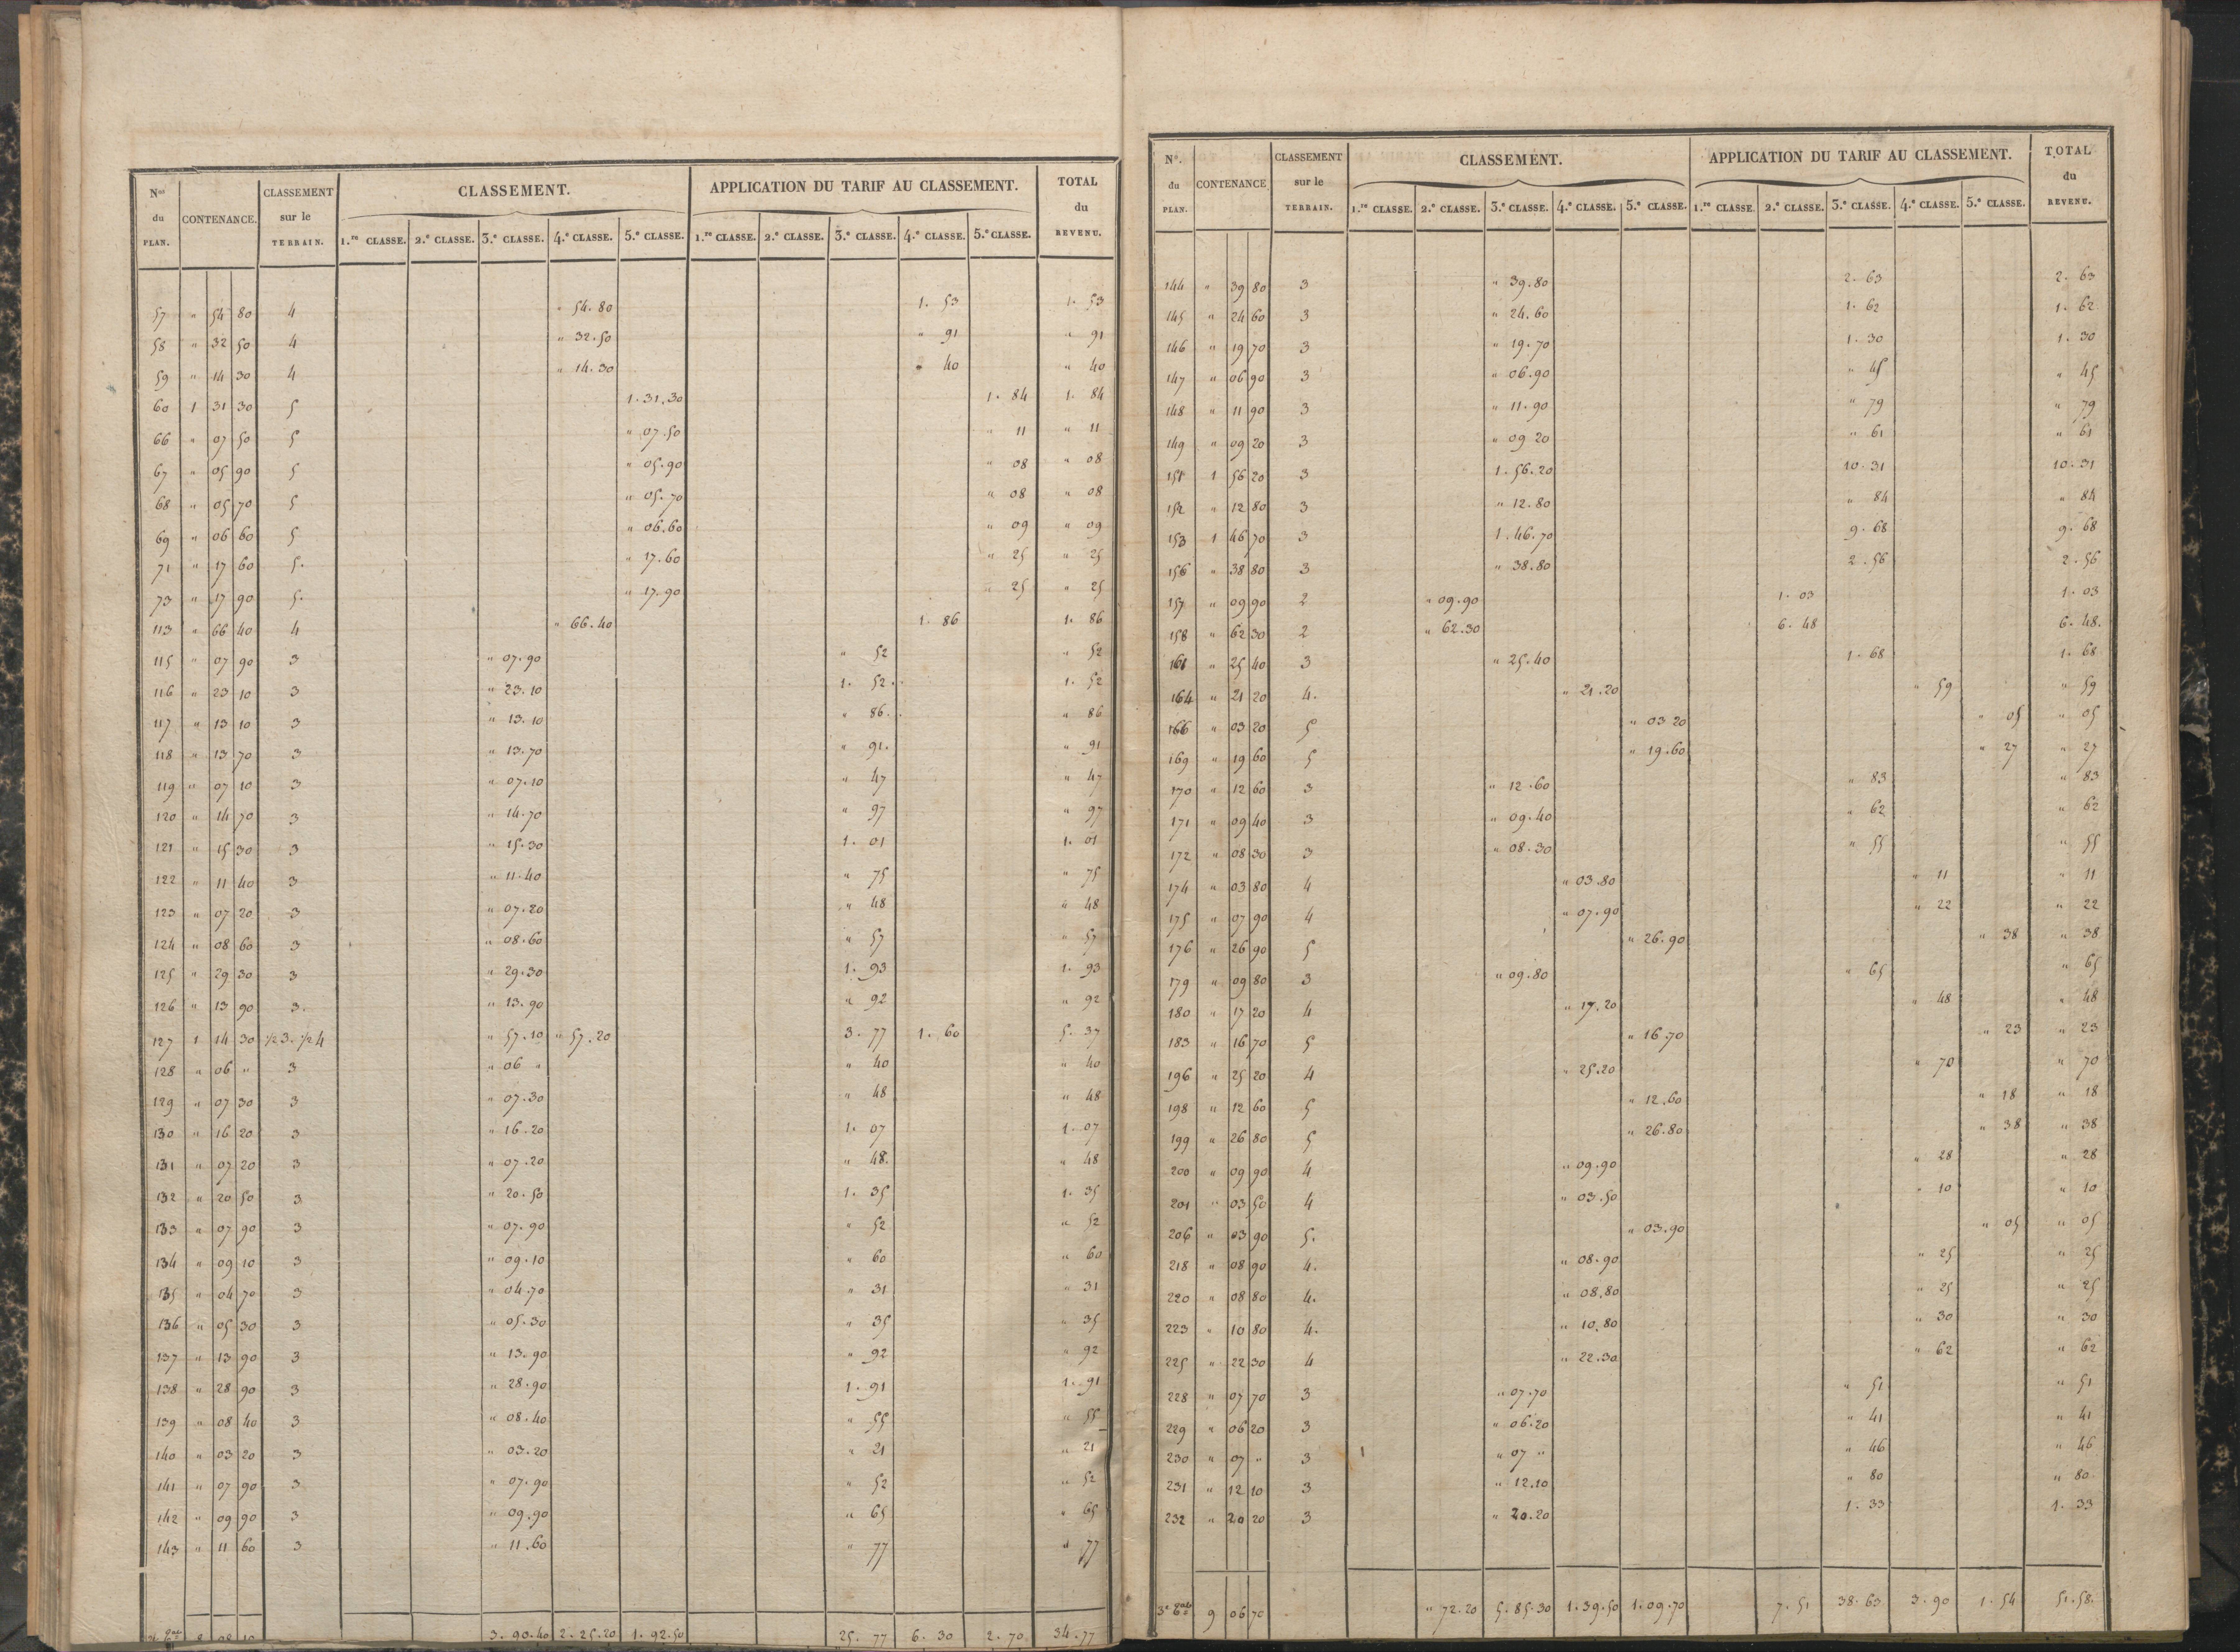 Nos du PLAN. CONTENANCE. CLASSEMENT sur le TERRAIN. CLASSEMENT. APPLICATION DU TARIF AU CLASSEMENT. TOTAL du REVENU.
1.re CLASSE. 2.e CLASSE. 3.e CLASSE. 4.e CLASSE. 5.e CLASSE. 1.re CLASSE. 2.e CLASSE. 3.e CLASSE. 4.e CLASSE. 5.e CLASSE.
57 " 54 80 4 " 54.80 1. 53 1. 53
58 " 32 50 4 " 32.50 " 91 " 91
59 " 14 30 4 " 14.30 " 40 " 40
60 1 31 30 5 1.31.30 1. 84 1. 84
66 " 07 50 5 " 07.50 " 11 " 11
67 " 05 90 5 " 05.90 " 08 " 08
68 " 05 70 5 " 05.70 " 08 " 08
69 " 06 60 5 " 06.60 " 09 " 09
71 " 17 60 5. " 17.60 " 25 " 25
73 " 17 90 5. " 17.90 " 25 " 25
113 " 66 40 4 " 66.40 1. 86 1. 86
115 " 07 90 3 " 07.90 " 52 " 52
116 " 23 10 3 " 23.10 1. 52. 1. 52
117 " 13 10 3 " 13.10 " 86. " 86
118 " 13 70 3 " 13.70 " 91. " 91
119 " 07 10 3 " 07.10 " 47 " 47
120 " 14 70 3 " 14.70 " 97 " 97
121 " 15 30 3 " 15.30 1. 01 1. 01
122 " 11 40 3 " 11.40 " 75 " 75
123 " 07 20 3 " 07.20 " 48 " 48
124 " 08 60 3 " 08.60 " 57 " 57
125 " 29 30 3 " 29.30 1. 93 1. 93
126 " 13 90 3. " 13.90 " 92 " 92
127 1 14 30 1/2 3. 1/2 4 " 57.10 " 57.20 3. 77 1. 60 5. 37
128 " 06 " 3 " 06 " " 40 " 40
129 " 07 30 3 " 07.30 " 48 " 48
130 " 16 20 3 " 16.20 1. 07 1. 07
131 " 07 20 3 " 07.20 " 48. " 48
132 " 20 50 3 " 20.50 1. 35 1. 35
133 " 07 90 3 " 07.90 " 52 " 52
134 " 09 10 3 " 09.10 " 60 " 60
135 " 04 70 3 " 04.70 " 31 " 31
136 " 05 30 3 " 05.30 " 35 " 35
137 " 13 90 3 " 13.90 " 92 " 92
138 " 28 90 3 " 28.90 1. 91 1. 91
139 " 08 40 3 " 08.40 " 55 " 55
140 " 03 20 3 " 03.20 " 21 " 21
141 " 07 90 3 " 07.90 " 52 " 52
142 " 09 90 3 " 09.90 " 65 " 65
143 " 11 60 3 " 11.60 " 77 " 77
3.90.40 2.25.20 1.92.50 25. 77 6. 30 2. 70 34.77
No. du PLAN. CONTENANCE CLASSEMENT sur le TERRAIN. CLASSEMENT. APPLICATION DU TARIF AU CLASSEMENT. TOTAL du REVENU.
1.re CLASSE. 2.e CLASSE. 3.e CLASSE. 4.e CLASSE. 5.e CLASSE. 1.re CLASSE. 2.e CLASSE. 3.e CLASSE. 4.e CLASSE. 5.e CLASSE.
144 " 39 80 3 " 39.80 2. 63 2. 63
145 " 24 60 3 " 24.60 1. 62 1. 62
146 " 19 70 3 " 19.70 1. 30 1. 30
147 " 06 90 3 " 06.90 " 45 " 45
148 " 11 90 3 " 11.90 " 79 " 79
149 " 09 20 3 " 09 20 " 61 " 61
151 1 56 20 3 1.56.20 10. 31 10. 31
152 " 12 80 3 " 12.80 " 84 " 84
153 1 46 70 3 1.46.70 9. 68 9. 68
156 " 38 80 3 " 38.80 2. 56 2. 56
157 " 09 90 2 " 09.90 1. 03 1. 03
158 " 62 30 2 " 62.30 6. 48 6. 48.
161 " 25 40 3 " 25.40 1. 68 1. 68
164 " 21 20 4. " 21.20 " 59 " 59
166 " 03 20 5 " 03 20 " 05 " 05
169 " 19 60 5 " 19.60 " 27 " 27
170 " 12 60 3 " 12.60 " 83 " 83
171 " 09 40 3 " 09.40 " 62 " 62
172 " 08 30 3 " 08.30 " 55 " 55
174 " 03 80 4 " 03.80 " 11 " 11
175 " 07 90 4 " 07.90 " 22 " 22
176 " 26 90 5 " 26.90 " 38 " 38
179 " 09 80 3 " 09.80 " 65 " 65
180 " 17 20 4 " 17.20 " 48 " 48
183 " 16 70 5 " 16.70 " 23 " 23
196 " 25 20 4 " 25.20 " 70 " 70
198 " 12 60 5 " 12.60 " 18 " 18
199 " 26 80 5 " 26.80 " 38 " 38
200 " 09 90 4 " 09.90 " 28 " 28
201 " 03 50 4 " 03.50 " 10 " 10
206 " 03 90 5. " 03.90 " 05 " 05
218 " 08 90 4. " 08.90 " 25 " 25
220 " 08 80 4. " 08.80 " 25 " 25
223 " 10 80 4. " 10.80 " 30 " 30
225 " 22 30 4 " 22.30 " 62 " 62
228 " 07 70 3 " 07.70 " 51 " 51
229 " 06 20 3 " 06.20 " 41 " 41
230 " 07 " 3 " 07 " " 46 " 46
231 " 12 10 3 " 12.10 " 80 " 80
232 " 20 20 3 " 20.20 1. 33 1. 33
9 06 70 " 72.20 5.85.30 1.39.50 1.09.70 7. 51 38. 63 3. 90 1. 54 51.58.